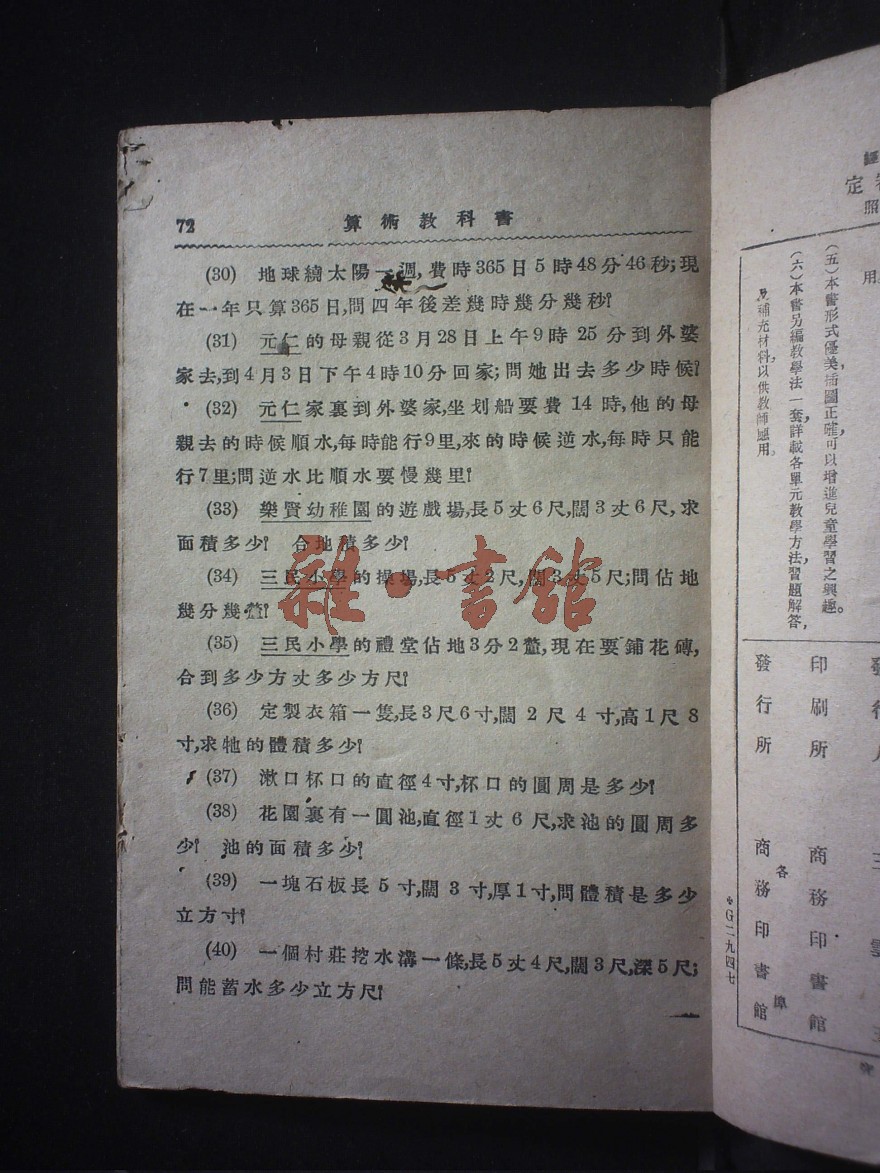 72 算術教科書
(30) 地球繞太陽一週,費時365日5時48分46秒;現
在一年只算365日,問四年後差幾時幾分幾秒?
(31) 元仁的母親從3月28日上午9時25分到外婆
家去,到4月3日下午4時10分回家;問她出去多少時候?
(32) 元仁家裏到外婆家,坐划船要費14時,他的母
親去的時候順水,每時能行9里,來的時候逆水,每時只能
行7里;問逆水比順水要慢幾里?
(33) 樂賢幼稚園的遊戲場,長5丈6尺,闊3丈6尺,求
面積多少? 合地積多少?
(34) 三民小學的操場,長5丈2尺,闊3丈5尺;問佔地
幾分幾釐?
(35) 三民小學的禮堂佔地3分2釐,現在要鋪花磚,
合到多少方丈多少方尺?
(36) 定製衣箱一隻,長3尺6寸,闊2尺4寸,高1尺8
寸,求牠的體積多少?
(37) 漱口杯口的直徑4寸,杯口的圓周是多少?
(38) 花園裏有一圓池,直徑1丈6尺,求池的圓周多
少? 池的面積多少?
(39) 一塊石板長5寸,闊3寸,厚1寸,問體積是多少
立方寸?
(40) 一個村莊挖水溝一條,長5丈4尺,闊3尺,深5尺;
問能蓄水多少立方尺?
雜·書館
定
照
用。
(五)本書形式優美,插圖正確,可以增進兒童學習之興趣。
(六)本書另編教學法一套,詳載各單元教學方法,習題解答,
及補充材料,以供教師應用。
發行
印刷所 商務印書館
發行所 各埠 商務印書館
※G二九四七